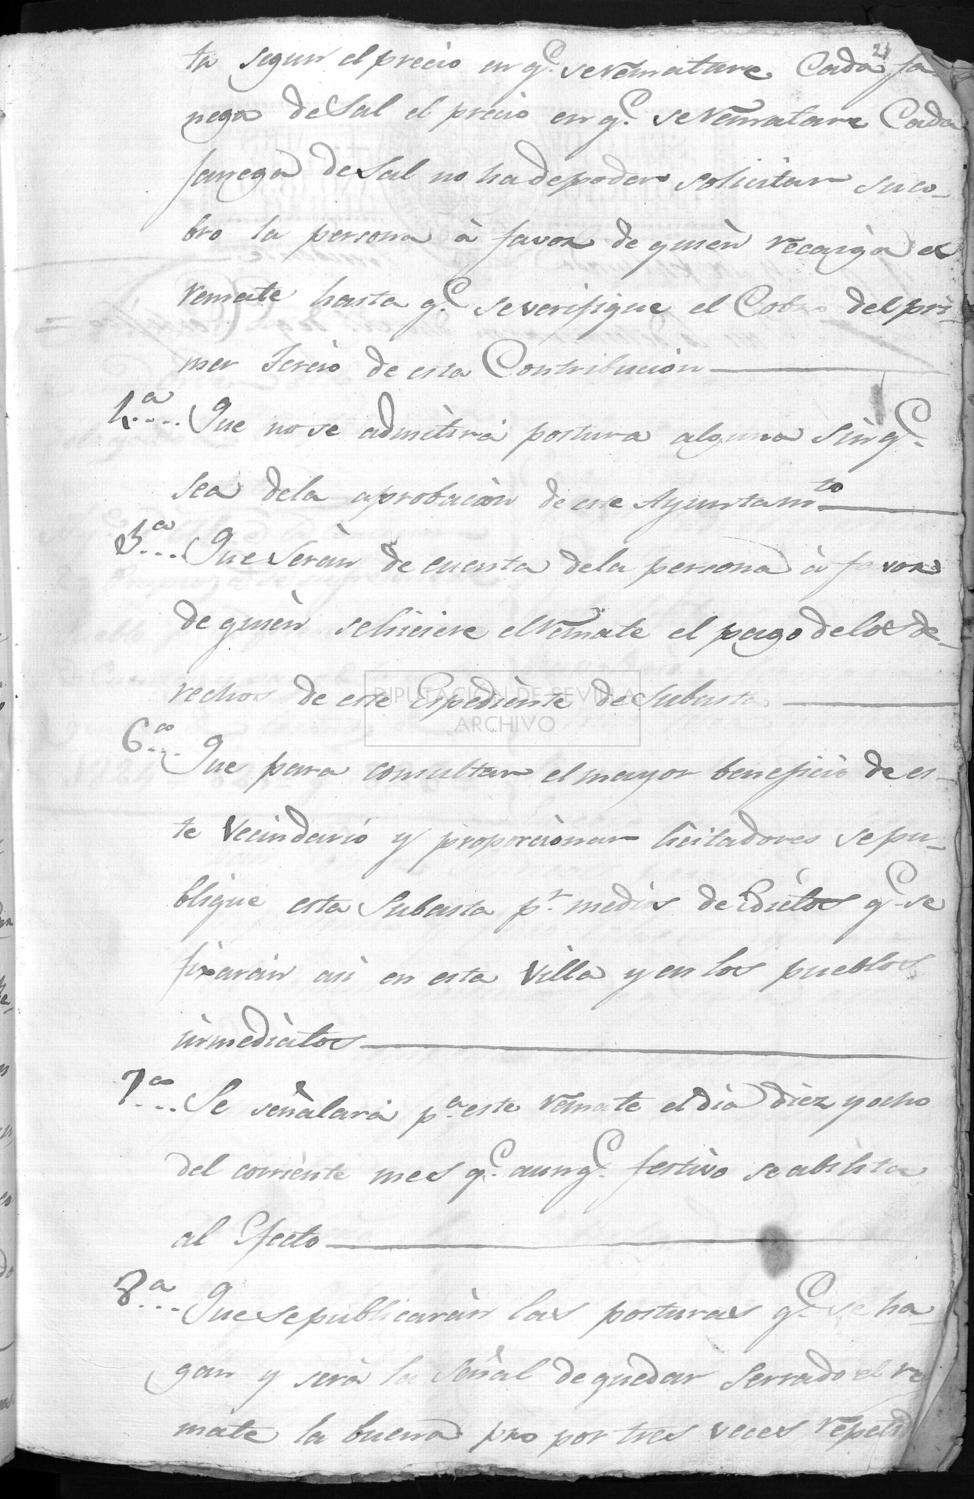 21
ta segun el precio en q.e se rematare Cada fa
nega de Sal el precio en q.e se rematare Cada
fanega de Sal no ha de poder solicitar su co-
bro la persona à favor de quièn recaiga el
remate hasta q.e se verifique el Cobro del pri-
mer Tercio de esta Contribucion
4.a Que no se admitirà postura alguna sin q.e
sea dela aprobacion de este Ayuntam.to
5.a Que seràn de cuenta dela persona à favor
de quièn se hiciere el remate el pago delos de-
rechos de este Expediente de Subasta
DIPUTACIÓN DE SEVILLA
ARCHIVO
6.a Que para consultar el mayor beneficio de es-
te Vecindario y proporcionar licitadores se pu-
blique esta Subasta p.r medio de Edictos q.e se
fixaràn asi en esta Villa y en los pueblos
inmediatos
7.a Se señalarà p.a este remate el dia diez y ocho
del corriente mes q.e aunq.e festivo se abilita
al Efecto
8.a Que se publicaràn las posturas q.e se ha-
gan y serà la señal de quedar serrado el re
mate la buena pro por tres veces repetid